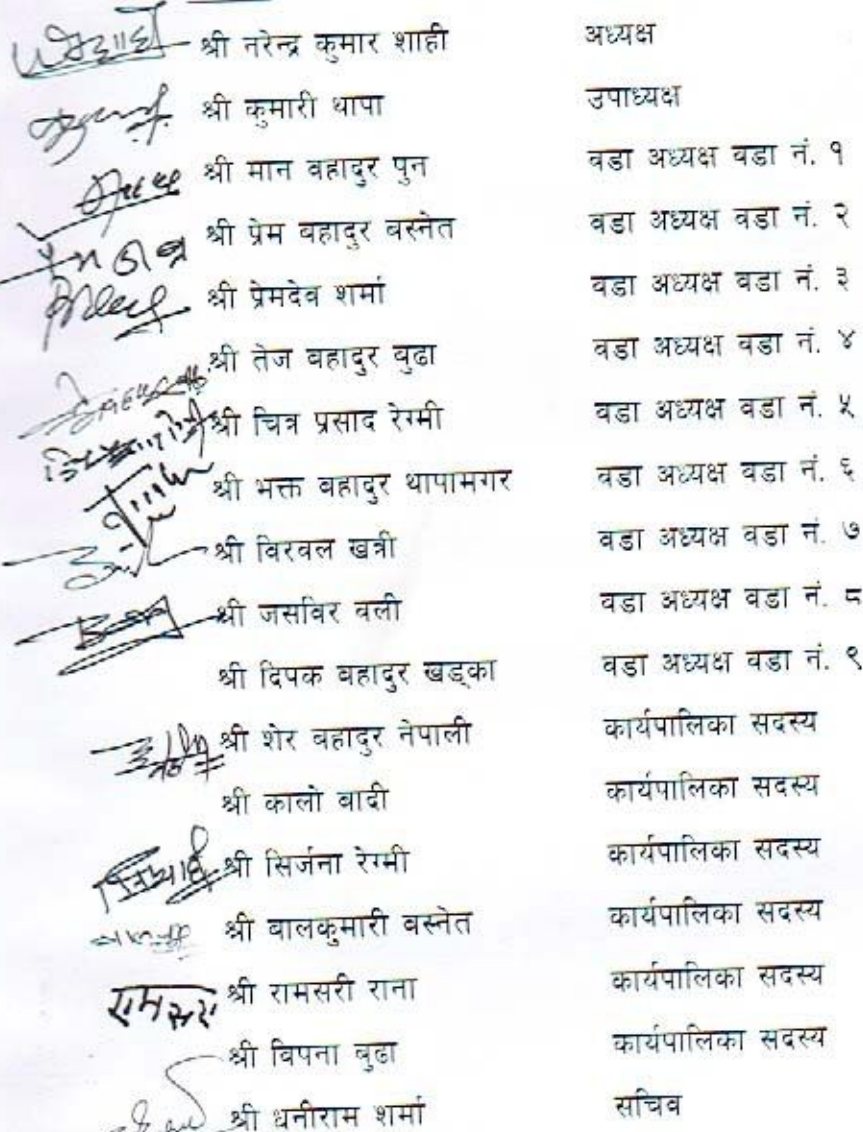 श्री नरेन्द्र कुमार शाही अध्यक्ष
श्री कुमारी थापा उपाध्यक्ष
श्री मान वहादुर पुन वडा अध्यक्ष वडा नं. १
श्री प्रेम वहादुर वस्नेत वडा अध्यक्ष वडा नं. २
श्री प्रेमदेव शर्मा वडा अध्यक्ष वडा नं. ३
श्री तेज वहादुर वुढा वडा अध्यक्ष वडा नं. ४
श्री चित्र प्रसाद रेग्मी वडा अध्यक्ष वडा नं. ५
श्री भक्त वहादुर थापामगर वडा अध्यक्ष वडा नं. ६
श्री विरवल खत्री वडा अध्यक्ष वडा नं. ७
श्री जसविर वली वडा अध्यक्ष वडा नं. ८
श्री दिपक वहादुर खड्का वडा अध्यक्ष वडा नं. ९
श्री शेर वहादुर नेपाली कार्यपालिका सदस्य
श्री कालो वादी कार्यपालिका सदस्य
श्री सिर्जना रेग्मी कार्यपालिका सदस्य
श्री वालकुमारी वस्नेत कार्यपालिका सदस्य
श्री रामसरी राना कार्यपालिका सदस्य
श्री विपना वुढा कार्यपालिका सदस्य
श्री धनीराम शर्मा सचिव